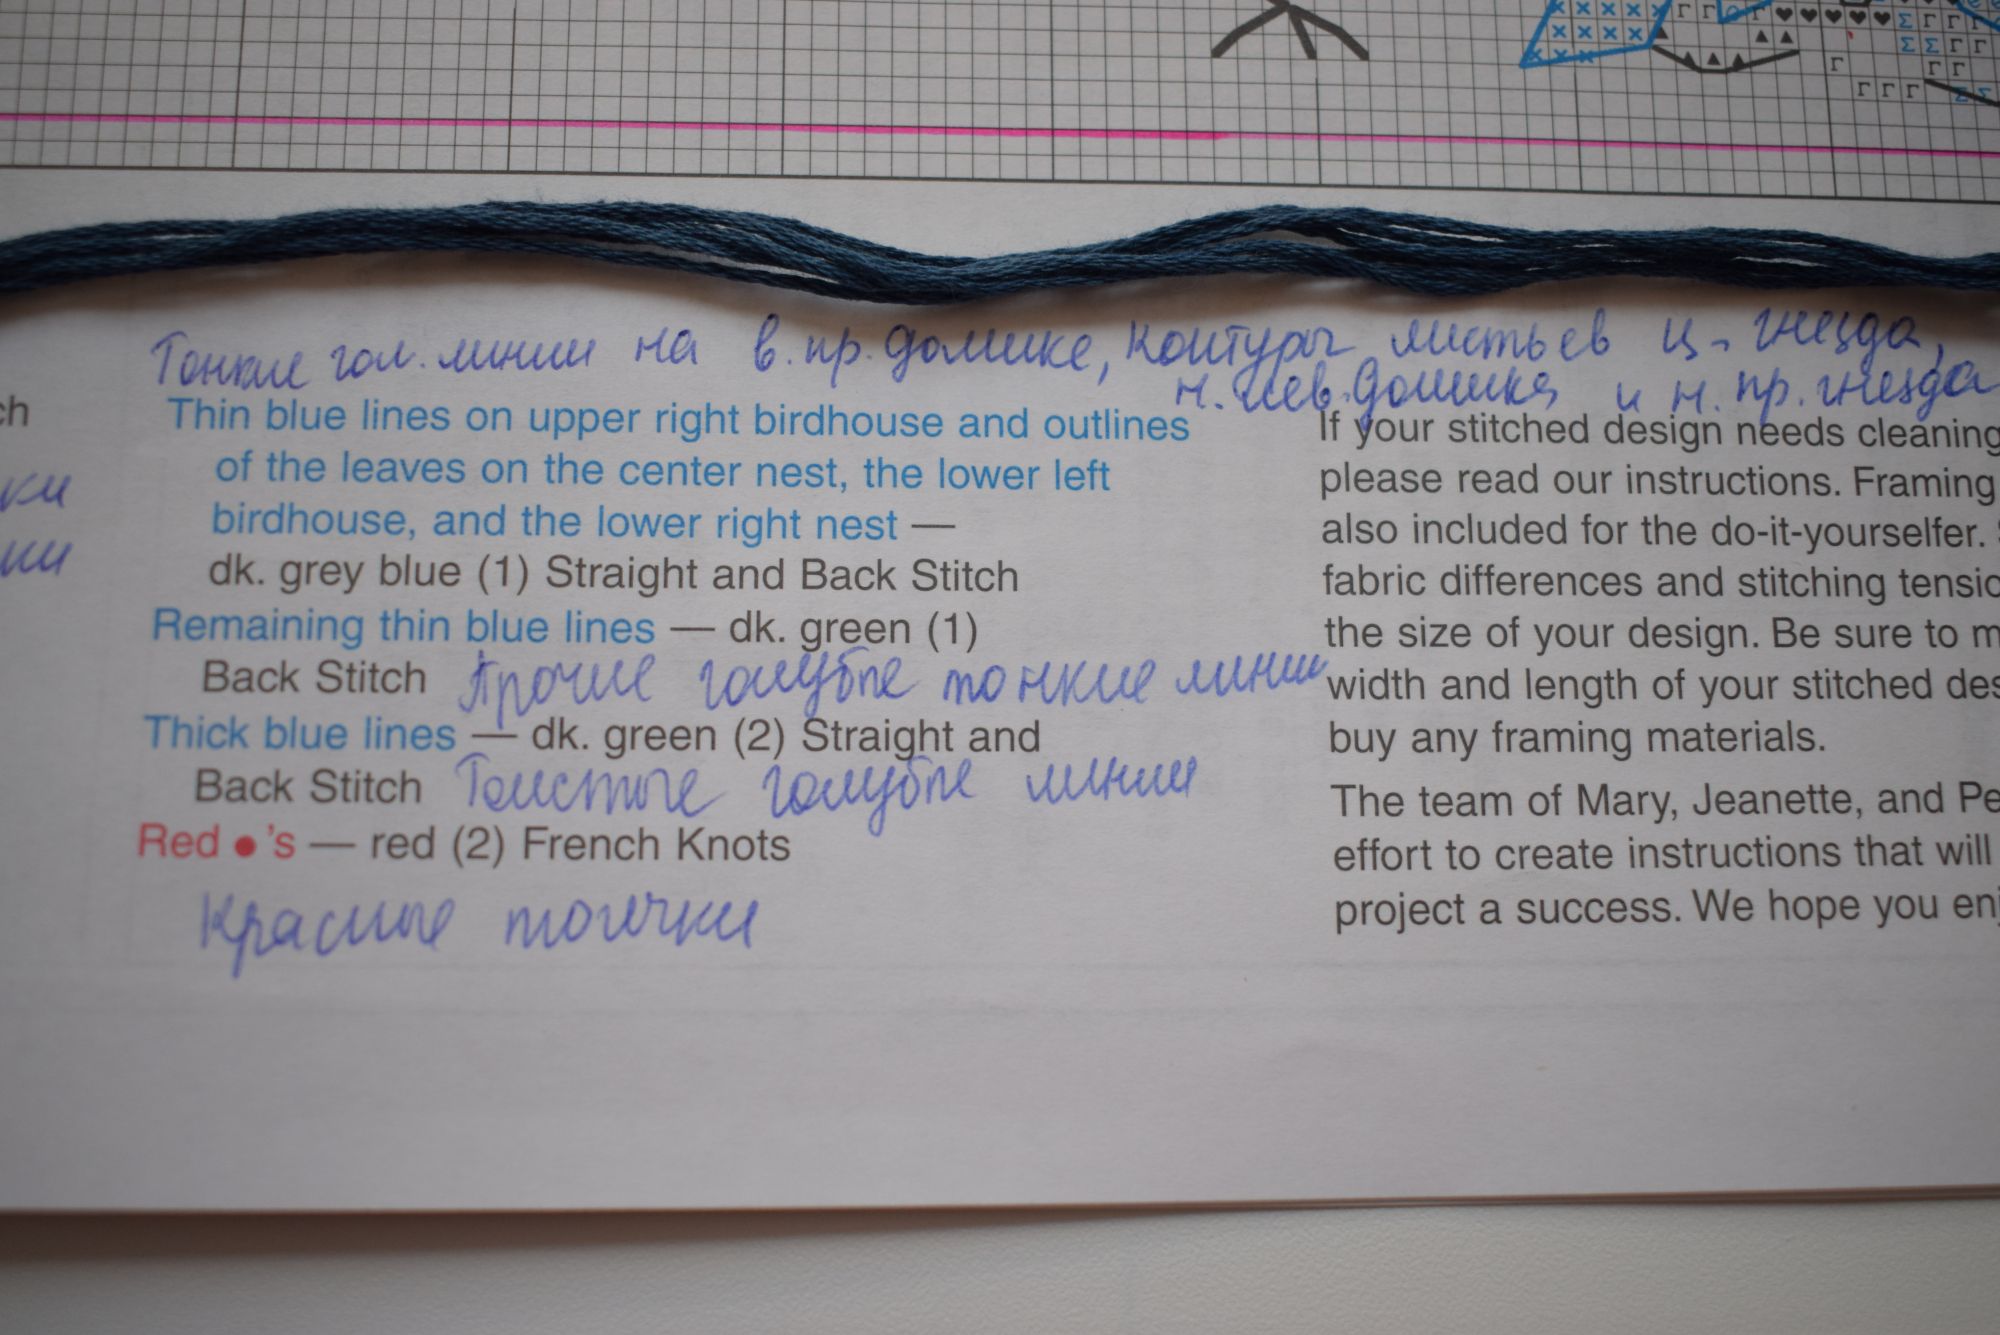 Тонкие гол. линии на в. пр. домике, Контуры листьев ц. гнезда,
н. лев. домика и н. пр. гнезда
ch
ки
ки
Thin blue lines on upper right birdhouse and outlines
of the leaves on the center nest, the lower left
birdhouse, and the lower right nest —
dk. grey blue (1) Straight and Back Stitch
Remaining thin blue lines — dk. green (1)
Back Stitch Прочие голубые тонкие линии
Thick blue lines — dk. green (2) Straight and
Back Stitch Толстые голубые линии
Red ●'s — red (2) French Knots
Красные точки
If your stitched design needs cleaning
please read our instructions. Framing
also included for the do-it-yourselfer.
fabric differences and stitching tensio
the size of your design. Be sure to m
width and length of your stitched des
buy any framing materials.
The team of Mary, Jeanette, and Pe
effort to create instructions that will
project a success. We hope you enj